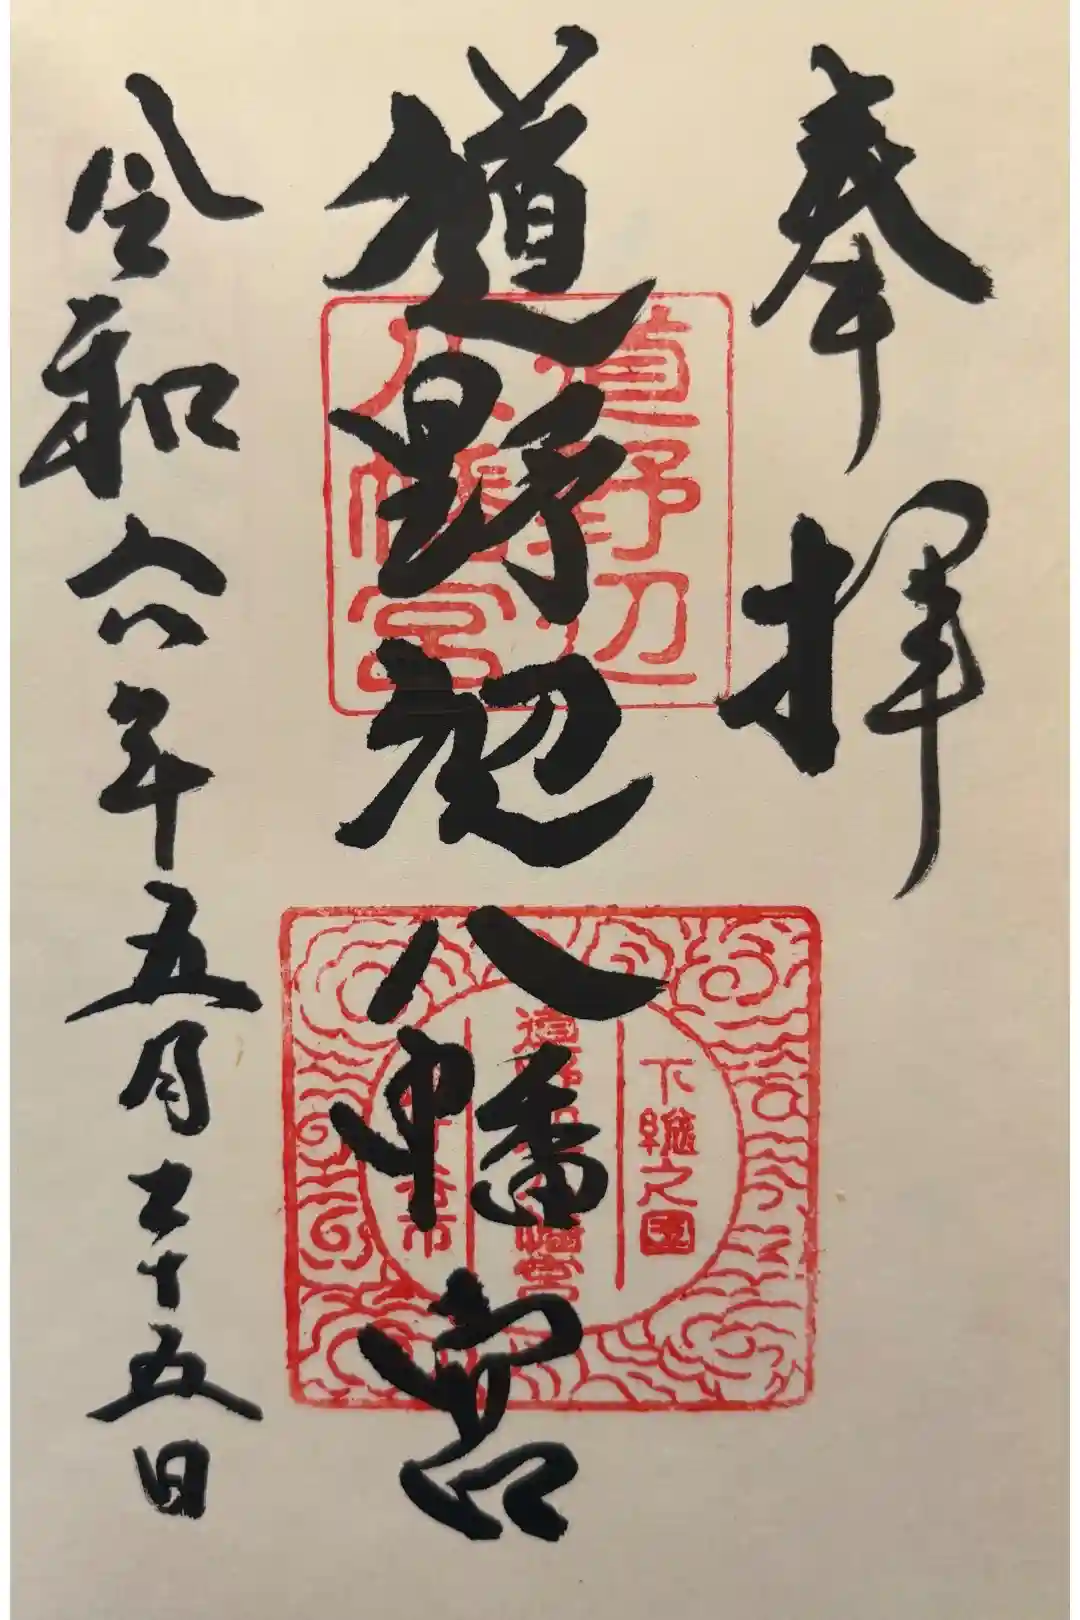 奉拝
道野辺八幡宮
令和六年五月二十五日
道野辺
八幡宮
下総之国
道野辺八幡宮